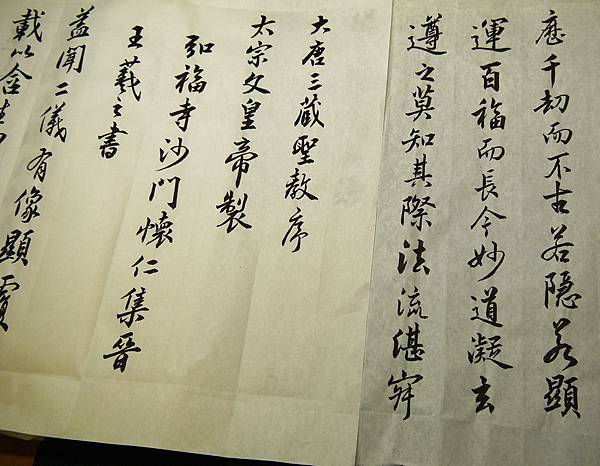 歷千劫而不古若隱若顯
運百福而長今妙道凝玄
遵之莫知其際法流湛寂
大唐三藏聖教序
太宗文皇帝製
弘福寺沙門懷仁集晉
王羲之書
蓋聞二儀有像顯覆
載以含